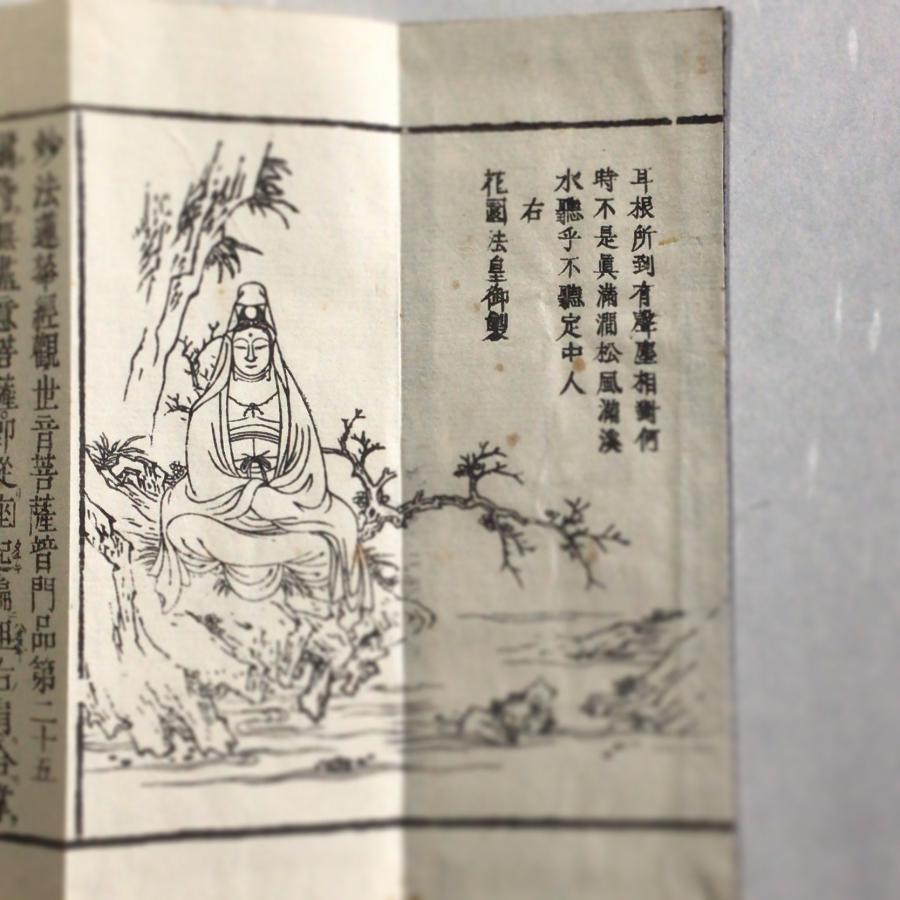 耳根所到有聲塵相對何
時不是眞滿澗松風滿溪
水聽乎不聽定中人
右
花園法皇御製
妙法蓮華經觀世音菩薩普門品第二十五
爾時無盡意菩薩即從座起偏袒右肩合掌